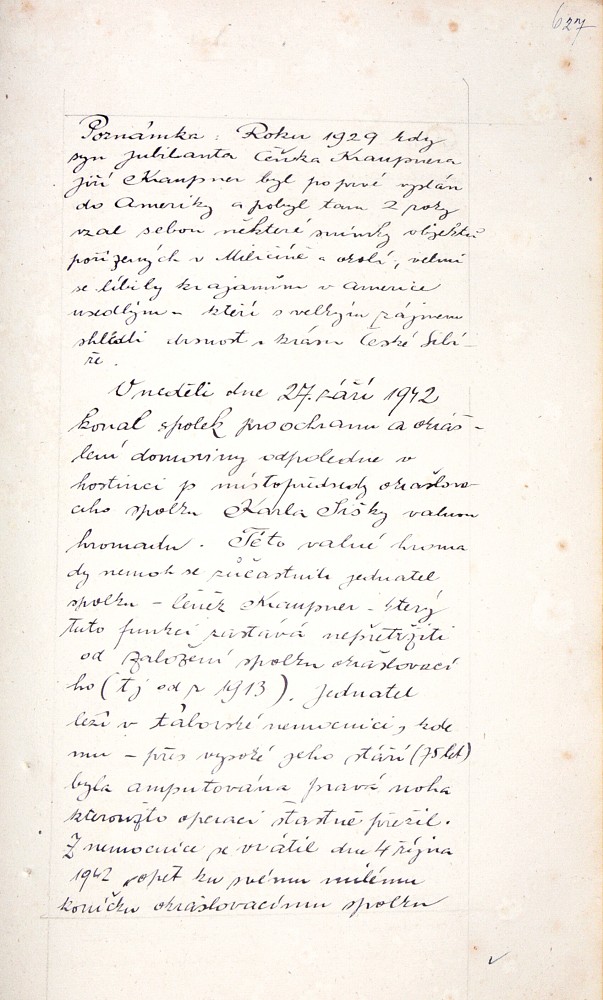 627
Poznámka: Roku 1929 kdy
syn jubilanta Čeňka Kraupnera
Jiří Kraupner byl poprvé vyslán
do Ameriky a pobyl tam 2 roky
vzal sebou některé snímky objektů
pořízených v Miličíně a okolí, velmi
se líbily krajanům v Americe
usedlým – kteří s velkým zájmem
shlédli drsnost a krásu České Sibi-
ře.
V neděli dne 27. září 1942
konal spolek pro ochranu a okráš-
lení domoviny odpoledne v
hostinci p místopředsedy okrašlova-
cího spolku Karla Šišky valnou
hromadu. Této valné hroma
dy nemoh se zúčastniti jednatel
spolku – Čeněk Kraupner – který
tuto funkci zastává nepřetržitě
od založení spolku okrašlovací
ho (tj od r 1913). Jednatel
leží v táborské nemocnici, kde
mu – přes vysoké jeho stáří (75 let)
byla amputována pravá noha
kteroužto operaci šťastně přežil.
Z nemocnice se vrátil dne 4 října
1942 opět ku svému milému
koníčku okrašlovacímu spolku